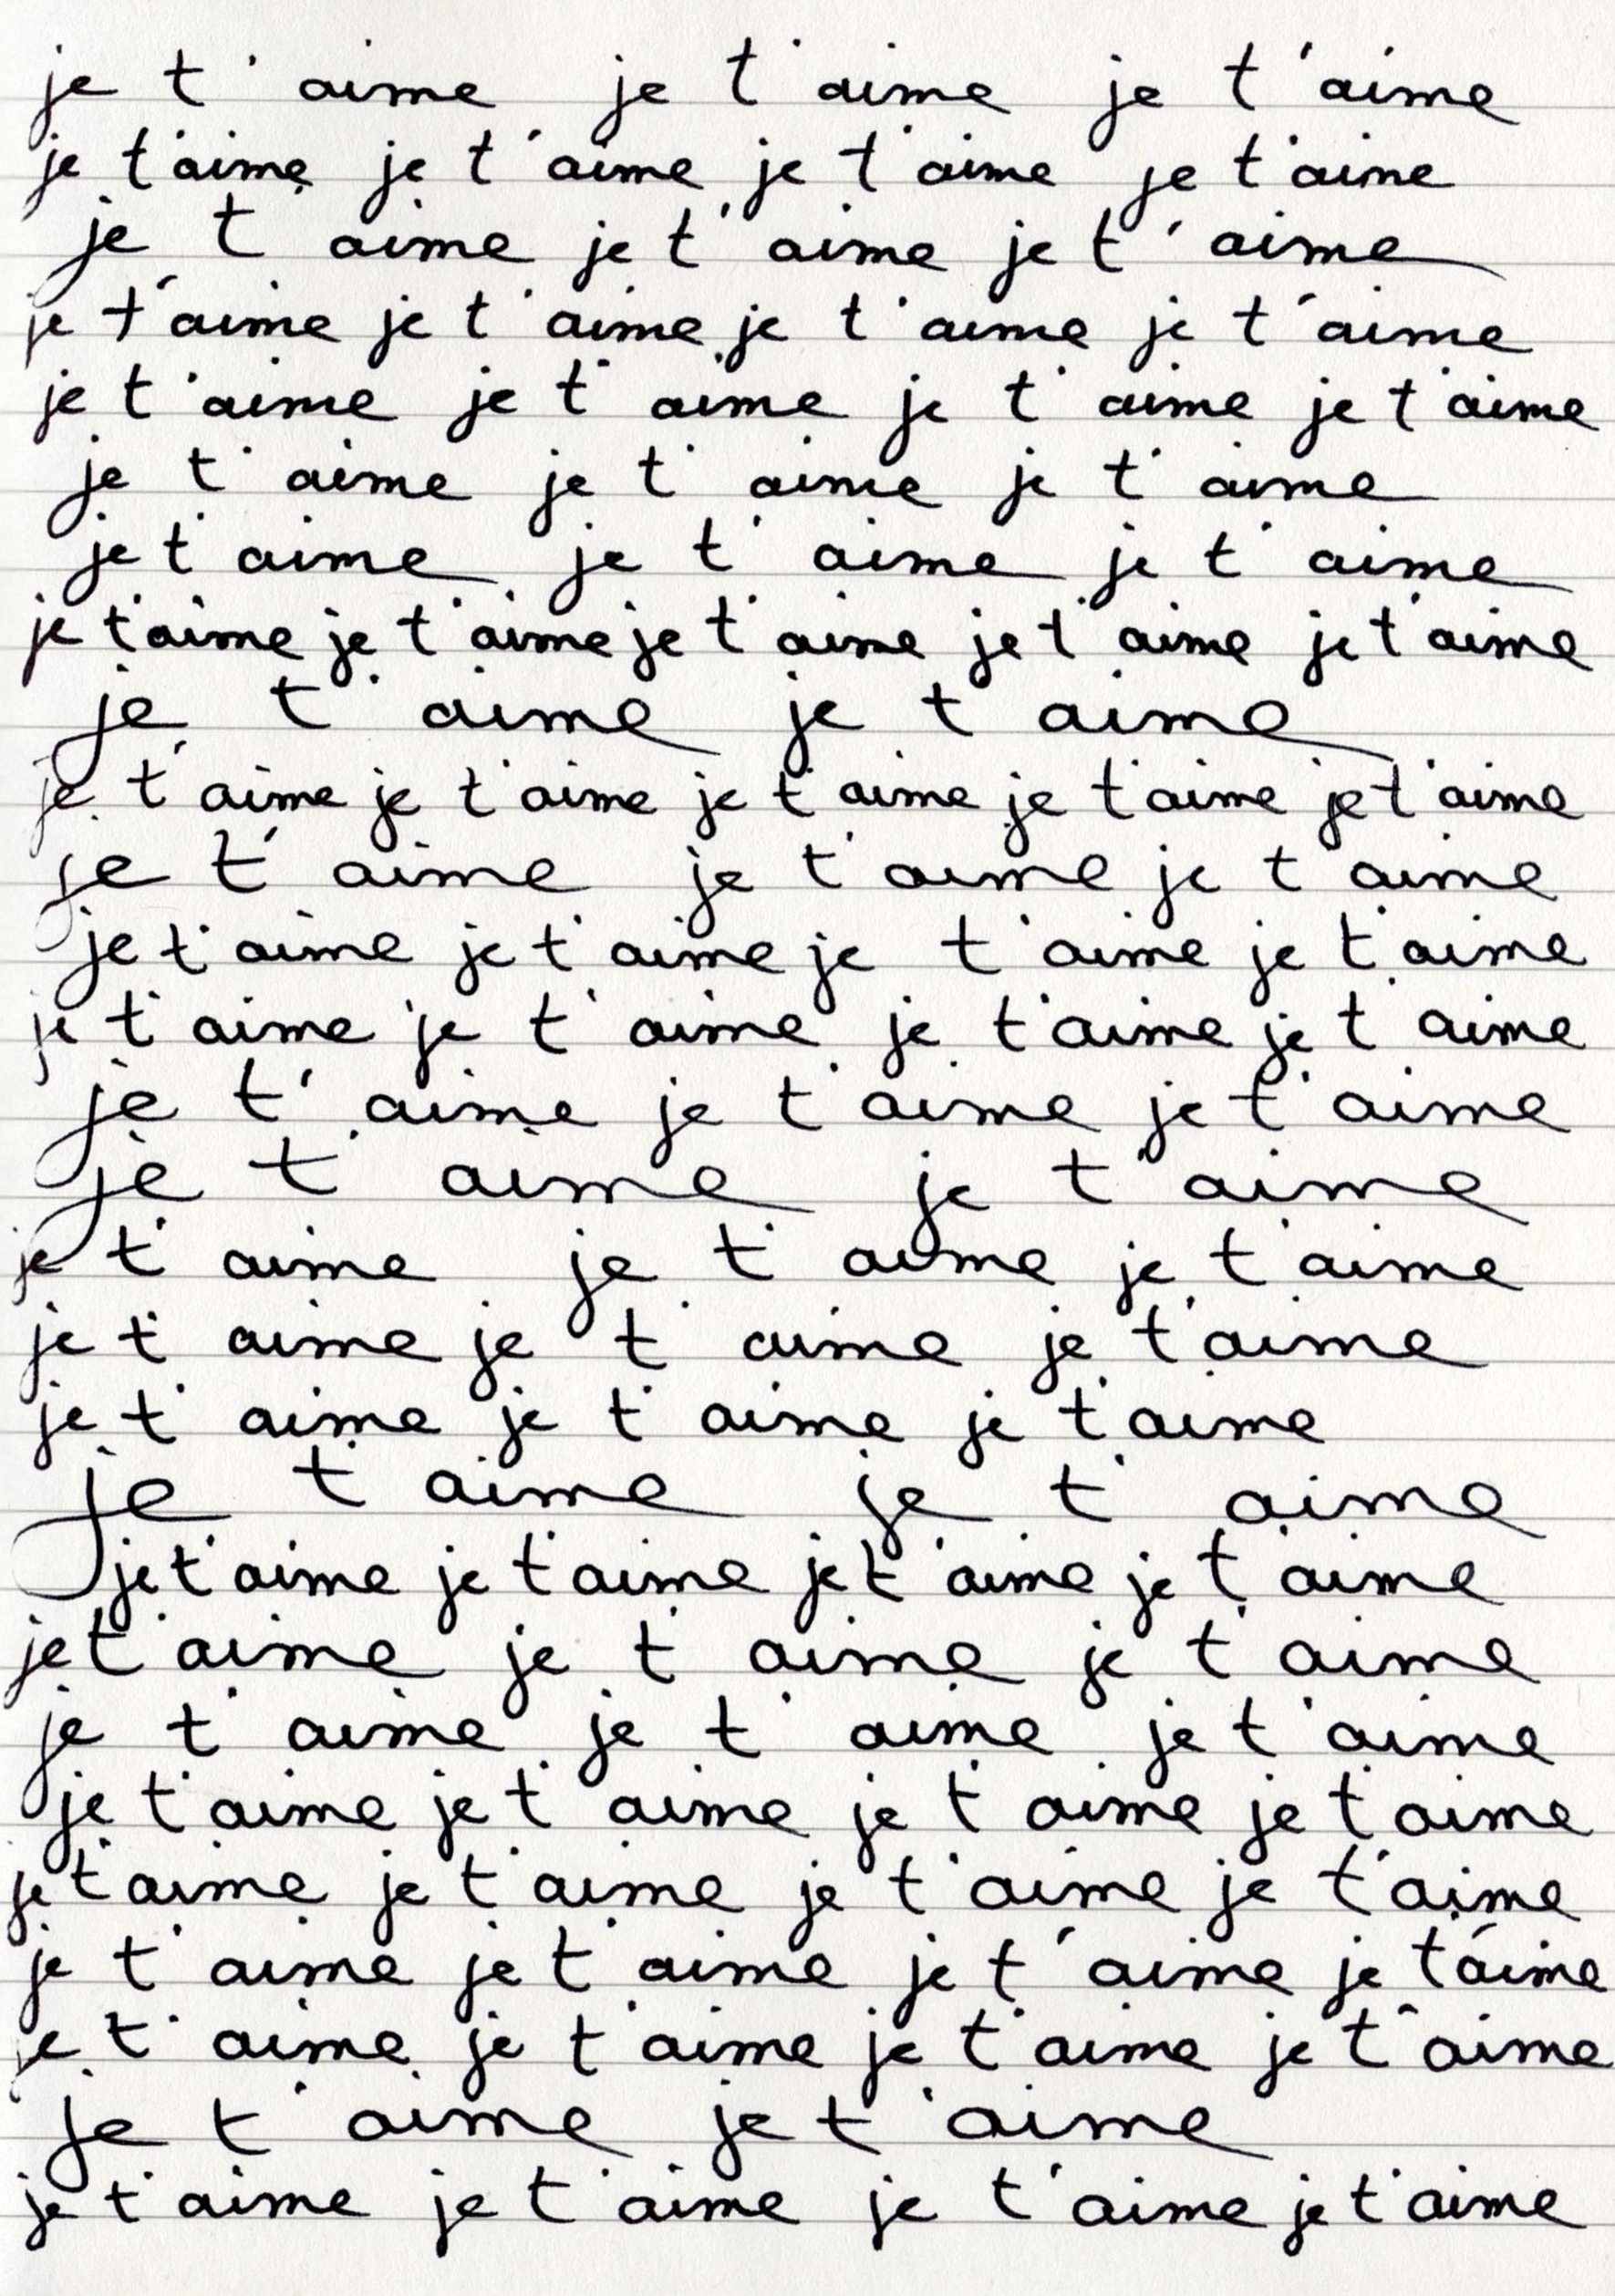 je t'aime je t'aime je t'aime
je t'aime je t'aime je t'aime je t'aime
je t'aime je t'aime je t'aime
je t'aime je t'aime je t'aime je t'aime
je t'aime je t'aime je t'aime je t'aime
je t'aime je t'aime je t'aime
je t'aime je t'aime je t'aime
je t'aime je t'aime je t'aime je t'aime je t'aime
je t'aime je t'aime
je t'aime je t'aime je t'aime je t'aime je t'aime
je t'aime je t'aime je t'aime
je t'aime je t'aime je t'aime je t'aime
je t'aime je t'aime je t'aime je t'aime
je t'aime je t'aime je t'aime
je t'aime je t'aime
je t'aime je t'aime je t'aime
je t'aime je t'aime je t'aime
je t'aime je t'aime je t'aime
je t'aime je t'aime
je t'aime je t'aime je t'aime je t'aime
je t'aime je t'aime je t'aime
je t'aime je t'aime je t'aime
je t'aime je t'aime je t'aime je t'aime
je t'aime je t'aime je t'aime je t'aime
je t'aime je t'aime je t'aime je t'aime
je t'aime je t'aime je t'aime je t'aime
je t'aime je t'aime
je t'aime je t'aime je t'aime je t'aime